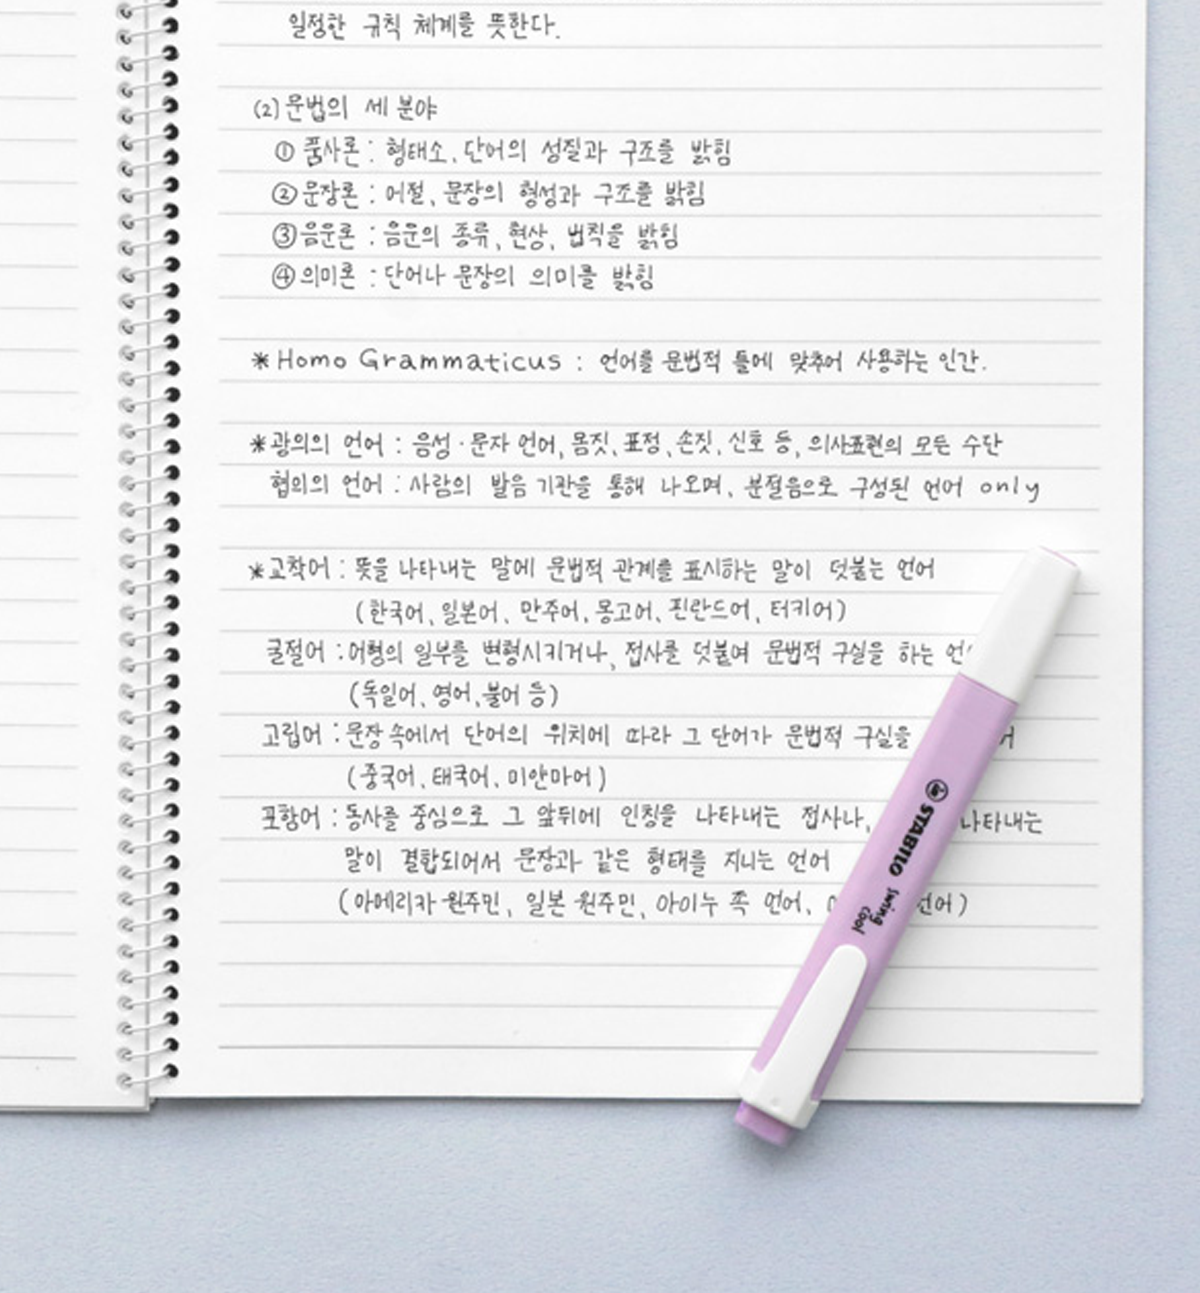 일정한 규칙 체계를 뜻한다.
(2) 문법의 세 분야
① 품사론 : 형태소, 단어의 성질과 구조를 밝힘
② 문장론 : 어절, 문장의 형성과 구조를 밝힘
③ 음운론 : 음운의 종류, 현상, 법칙을 밝힘
④ 의미론 : 단어나 문장의 의미를 밝힘
* Homo Grammaticus : 언어를 문법적 틀에 맞추어 사용하는 인간.
* 광의의 언어 : 음성·문자 언어, 몸짓, 표정, 손짓, 신호 등, 의사표현의 모든 수단
협의의 언어 : 사람의 발음 기관을 통해 나오며, 분절음으로 구성된 언어 only
* 교착어 : 뜻을 나타내는 말에 문법적 관계를 표시하는 말이 덧붙는 언어
(한국어, 일본어, 만주어, 몽고어, 핀란드어, 터키어)
굴절어 : 어형의 일부를 변형시키거나, 접사를 덧붙여 문법적 구실을 하는
(독일어, 영어, 불어 등)
고립어 : 문장 속에서 단어의 위치에 따라 그 단어가 문법적 구실을
(중국어, 태국어, 미얀마어)
포함어 : 동사를 중심으로 그 앞뒤에 인칭을 나타내는 접사나, 나타내는
말이 결합되어서 문장과 같은 형태를 지니는 언어
(아메리카 원주민, 일본 원주민, 아이누 족 언어, 언어)
STABILO
swing
cool